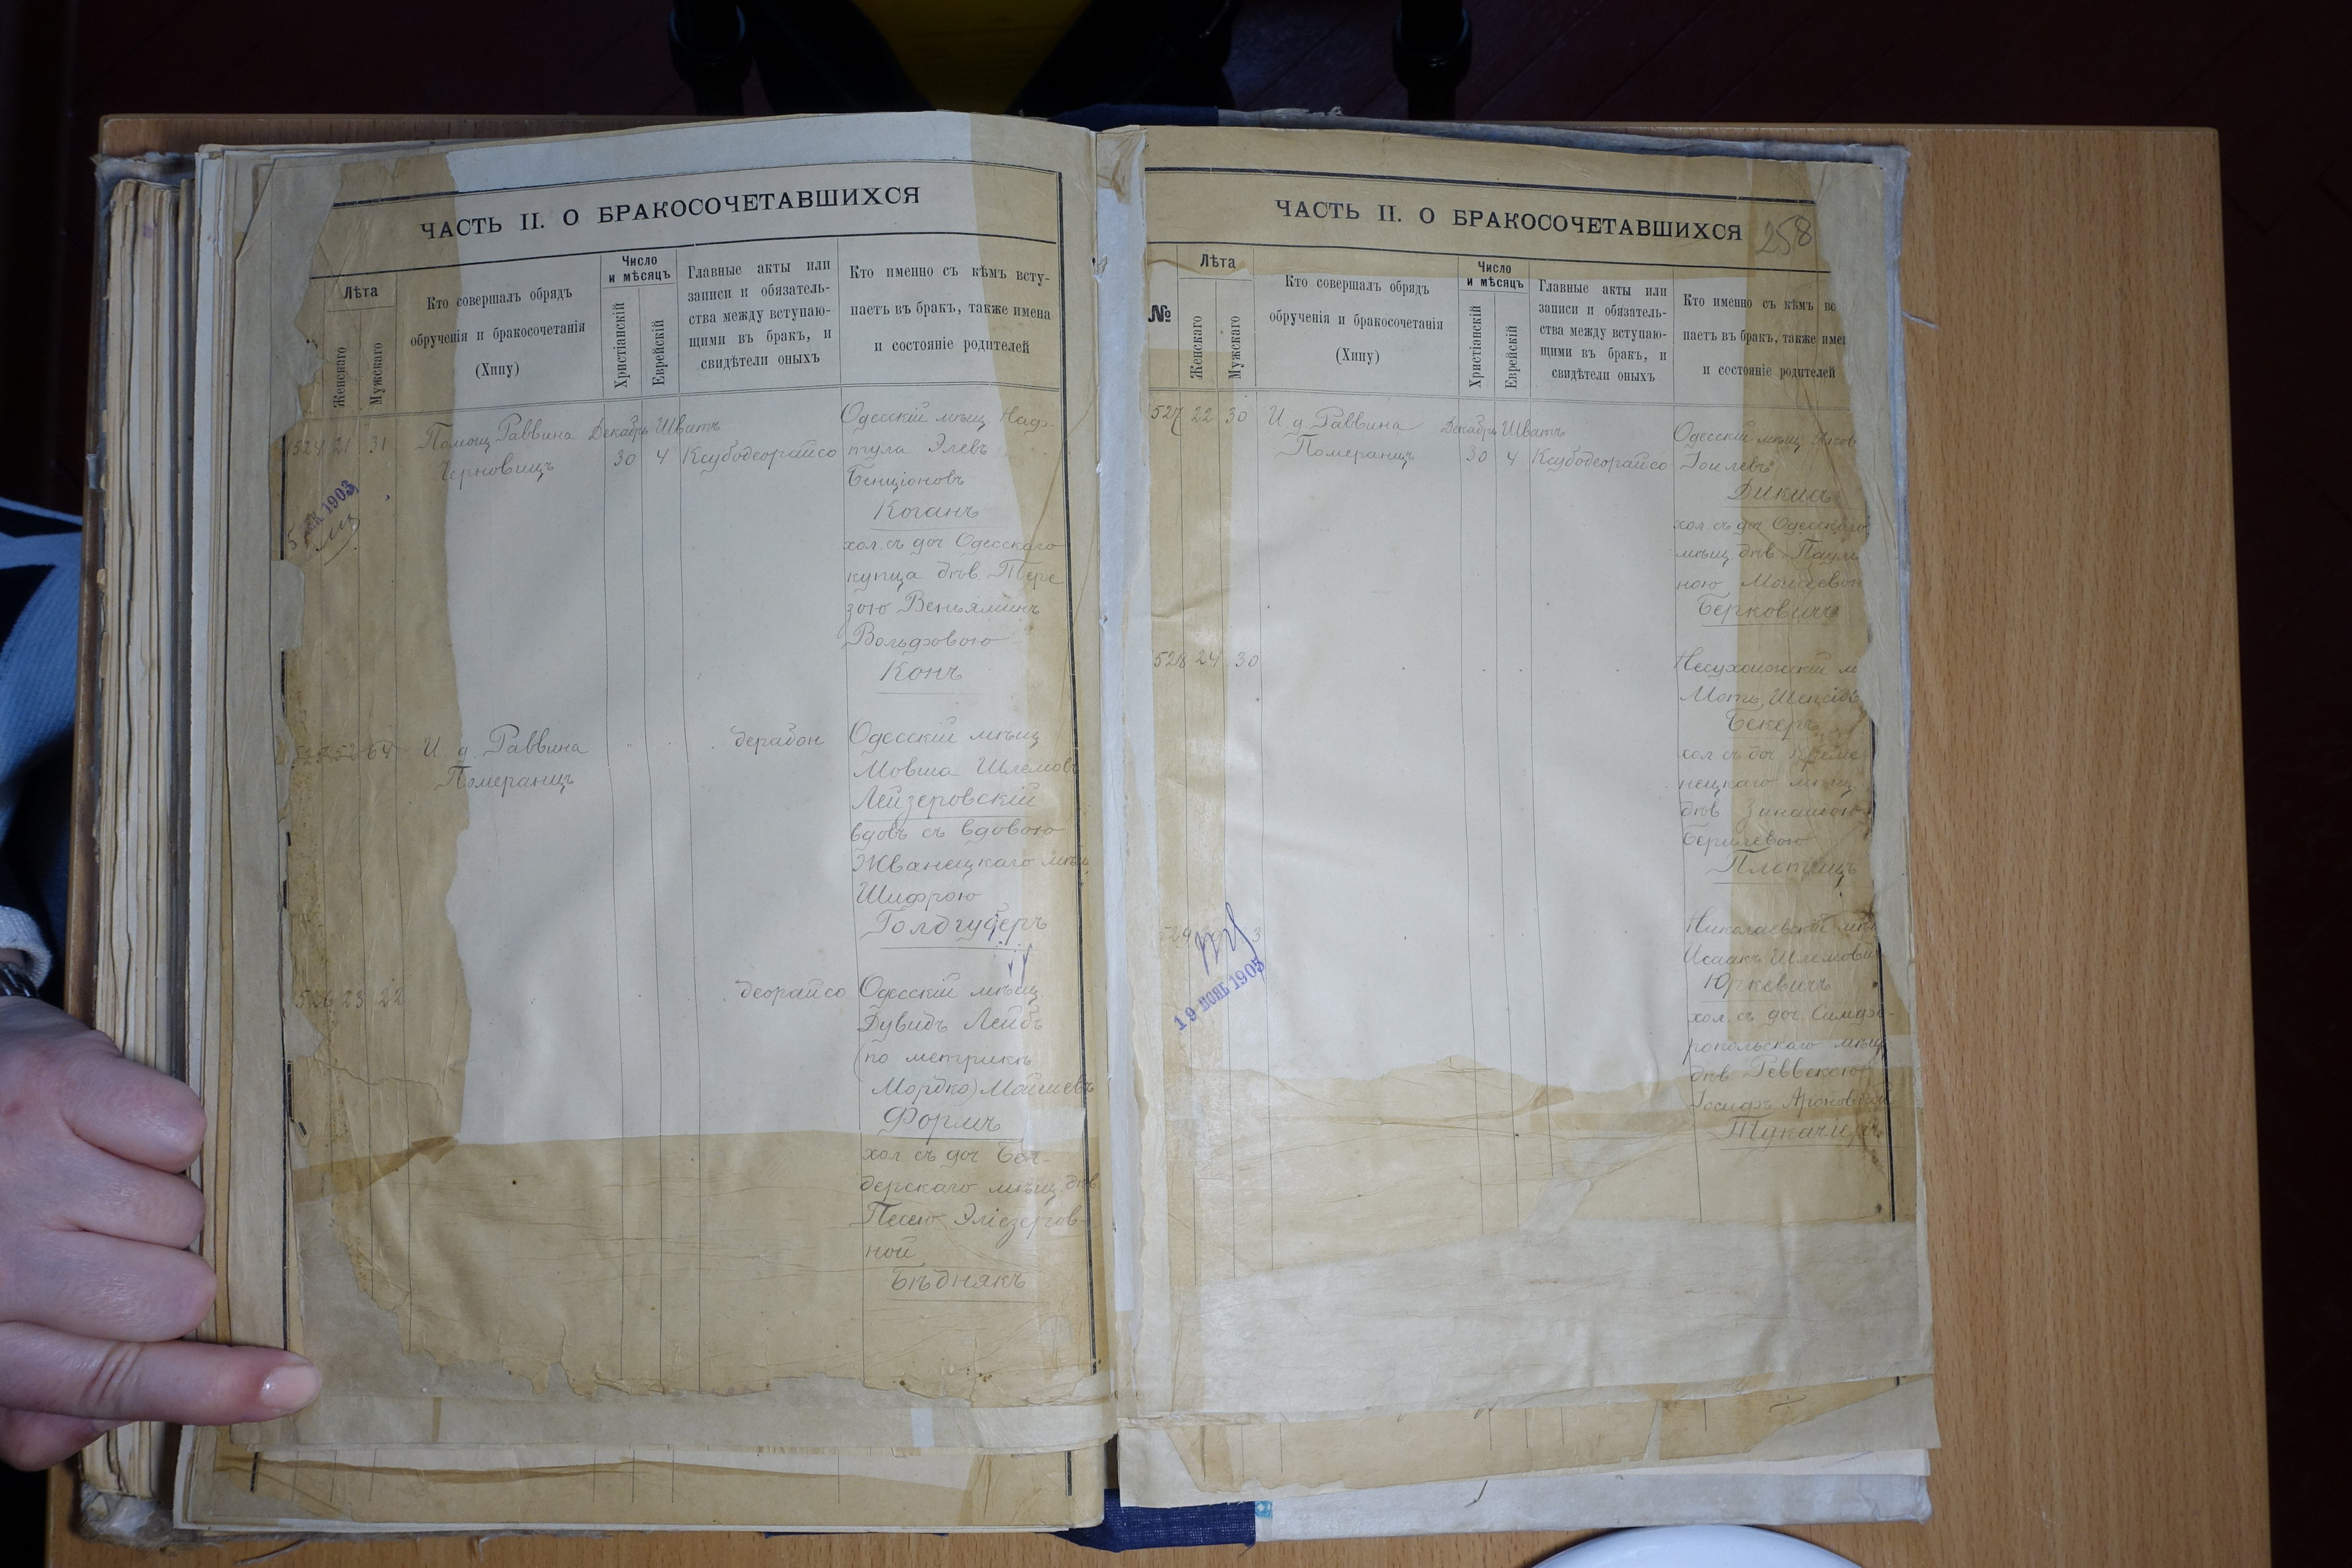 ЧАСТЬ II. О БРАКОСОЧЕТАВШИХСЯ
Лѣта
Женскаго
Мужскаго
Кто совершалъ обрядъ
обрученія и бракосочетанія
(Хипу)
Число
и мѣсяцъ
Христіанскій
Еврейскій
Главные акты или
записи и обязатель-
ства между вступаю-
щими въ бракъ, и
свидѣтели оныхъ
Кто именно съ кѣмъ всту-
паетъ въ бракъ, также имена
и состояніе родителей
524 21 31
Помощ Раввина
Черновицъ
Декабрь Шватъ
30 4 Ксубодеорайсо
Одесскій мѣщ Наф-
тула Элевъ
Бенціоновъ
Коганъ
хол. съ доч Одесскаго
купца дѣв. Тере
зою Веньяминъ
Вольфовою
Конъ
5 ДЕК 1903
525 52 64
И д. Раввина
Померанцъ
дерабон
Одесскій мѣщ
Мовша Шлемовъ
Лейзеровскій
вдовъ съ вдовою
Жванецкаго мѣщ
Шифрою
Голдгуберъ
526 23 22
деорайсо
Одесскій мѣщ.
Дувидъ Лейбъ
(по метрикѣ
Мордко) Мойшевъ
Формъ
хол съ доч Бен-
дерскаго мѣщ. дѣв
Песею Эліезеров-
ной
Бѣднякъ
ЧАСТЬ II. О БРАКОСОЧЕТАВШИХСЯ
258
№
Лѣта
Женскаго
Мужскаго
Кто совершалъ обрядъ
обрученія и бракосочетанія
(Хипу)
Число
и мѣсяцъ
Христіанскій
Еврейскій
Главные акты или
записи и обязатель-
ства между вступаю-
щими въ бракъ, и
свидѣтели оныхъ
Кто именно съ кѣмъ вс
паетъ въ бракъ, также имен
и состояніе родителей
527 22 30
И д. Раввина
Померанцъ
Декабрь Шватъ
30 4 Ксубодеорайсо
Одесскій мѣщ
Іоилевъ
Дикий
хол съ доч Одесскаго
мѣщ. дѣв Паули
ною Мошевою
Берковичъ
528 24 30
Несухоижскій м
Мотъ Шепсовъ
Бекеръ
хол съ доч Креме
нецкаго мѣщ
дѣв
Бершевою
Плотницъ
529
19 ІЮНЬ 1905
Николаевскій мѣщ
Исаакъ Шлемовичъ
Юркевичъ
хол. съ доч. Симфе-
ропольскаго мѣщ
дѣв Реввекою
Іосифъ Ароновной